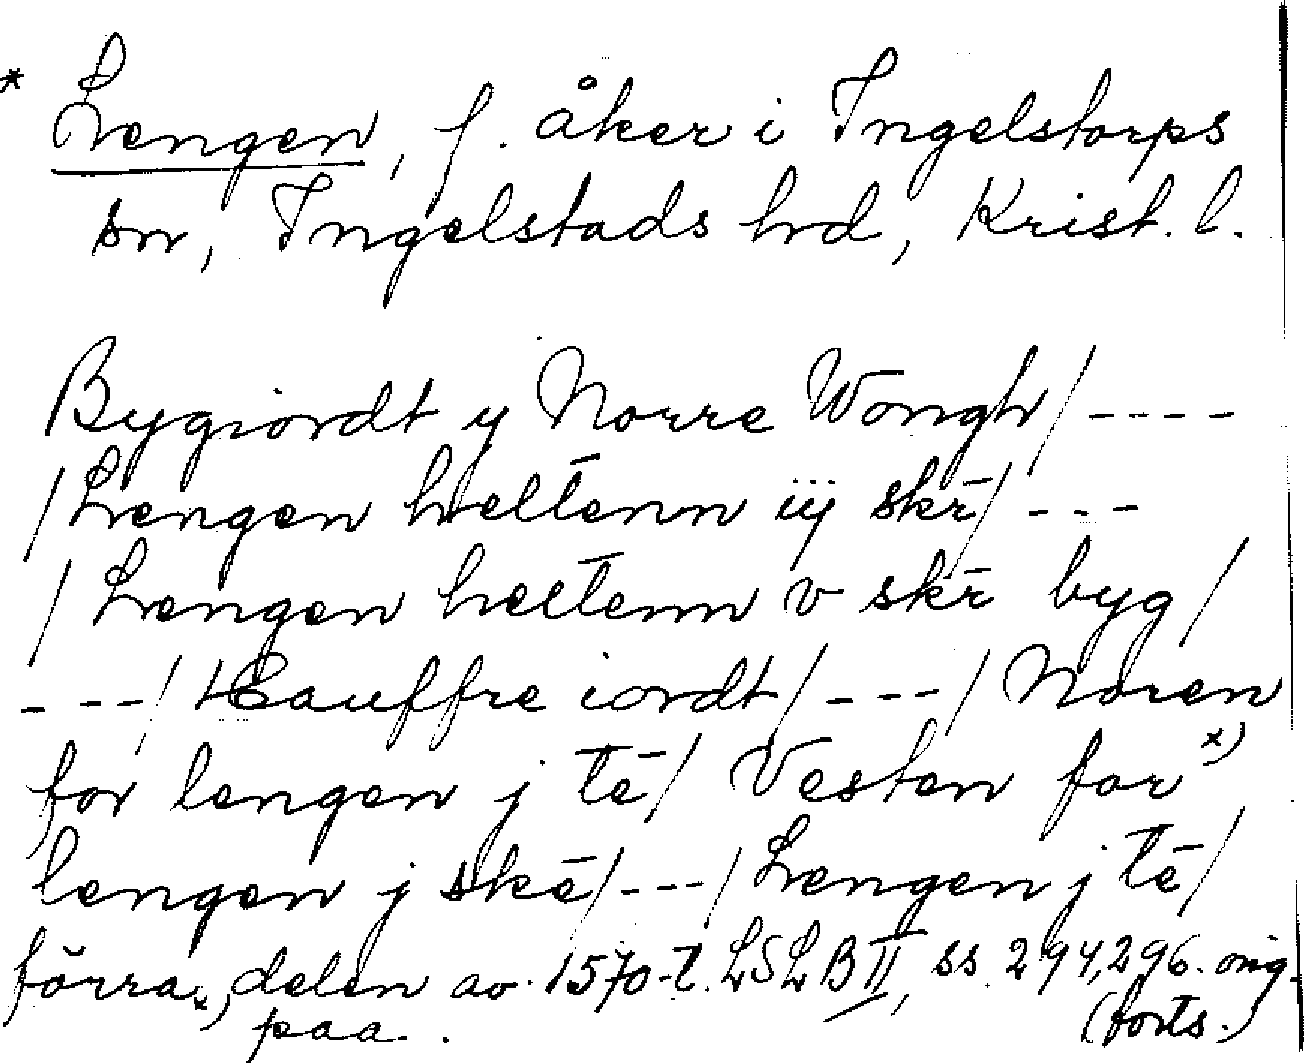 * Lengen, f. åker i Ingelstorps
sn, Ingelstads hd, Krist. l.
Bygiordt y Norre Wongh/----
/Lengen heltenn iij skr̄/---
/Lengen heltenn v skr̄ byg/
---/ Hauffre iordt/---/ Noren
for lengen j tē/ Vesten for x)
lengen j skē/---/Lengen j tē/
förra delen av 1570-t. LSLB II, ss. 294, 296. orig.
x) paa. (forts.)